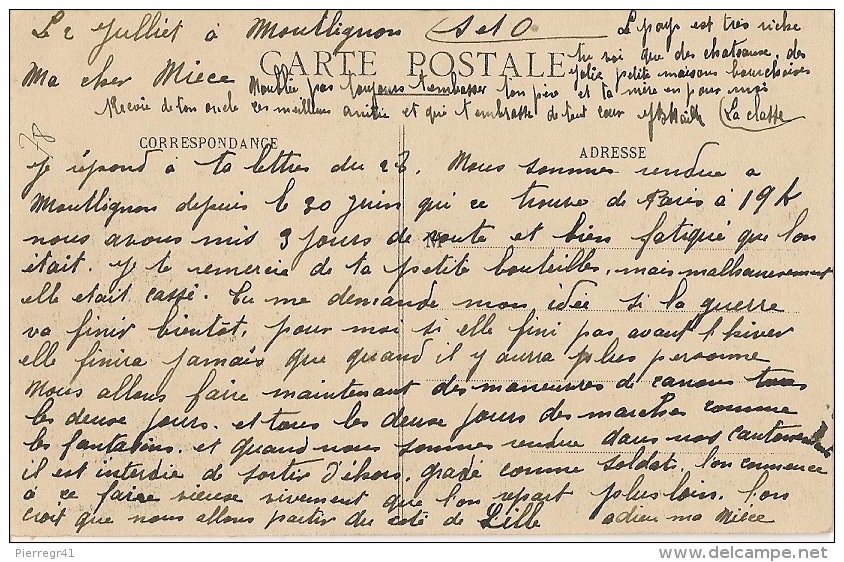 Le 2 Julliet à Moutlignon S et O
CARTE POSTALE
Ma cher Mièce
Le pays est très riche
tu voi que des chateause, des
jolie petite maisons bourchoises
Moublie pas toujours t'embrasser ton père et ta mère en pour moi
Recoie de ton oncle ces meilleurs amitie et qui t'embrasse de tout cœur
(La classe
78
CORRESPONDANCE
ADRESSE
Je répond à ta lettres du 28. Nous sommes rendue a
Moutlignon depuis le 30 juin qui ce trouve de Paris à 19 k
nous avous mis 3 jours de route et bien fatigué que l'on
était. Je te remercie de ta petite bouteilles, mais malheureusement
elle etait cassé. Tu me demande mon idée si la guerre
va finir bientôt, pour moi si elle fini pas avant l'hiver
elle finira jamais que quand il y aurra plus personne
Nous allons faire maintenant des maneuvres de canons tous
les deuse jours. et tous les deuse jours des marches comme
les fantasins. et quand nous sommes rendue dans nos cantonnements
il est interdie de sortir d'ehors, gradé comme soldat, l'on commence
à ce faire vieuse vivement que l'on repart plus loin. l'on
croit que nous allons partir du coté de Lille adieu ma Mièce
Pierregr41
delcampe.net